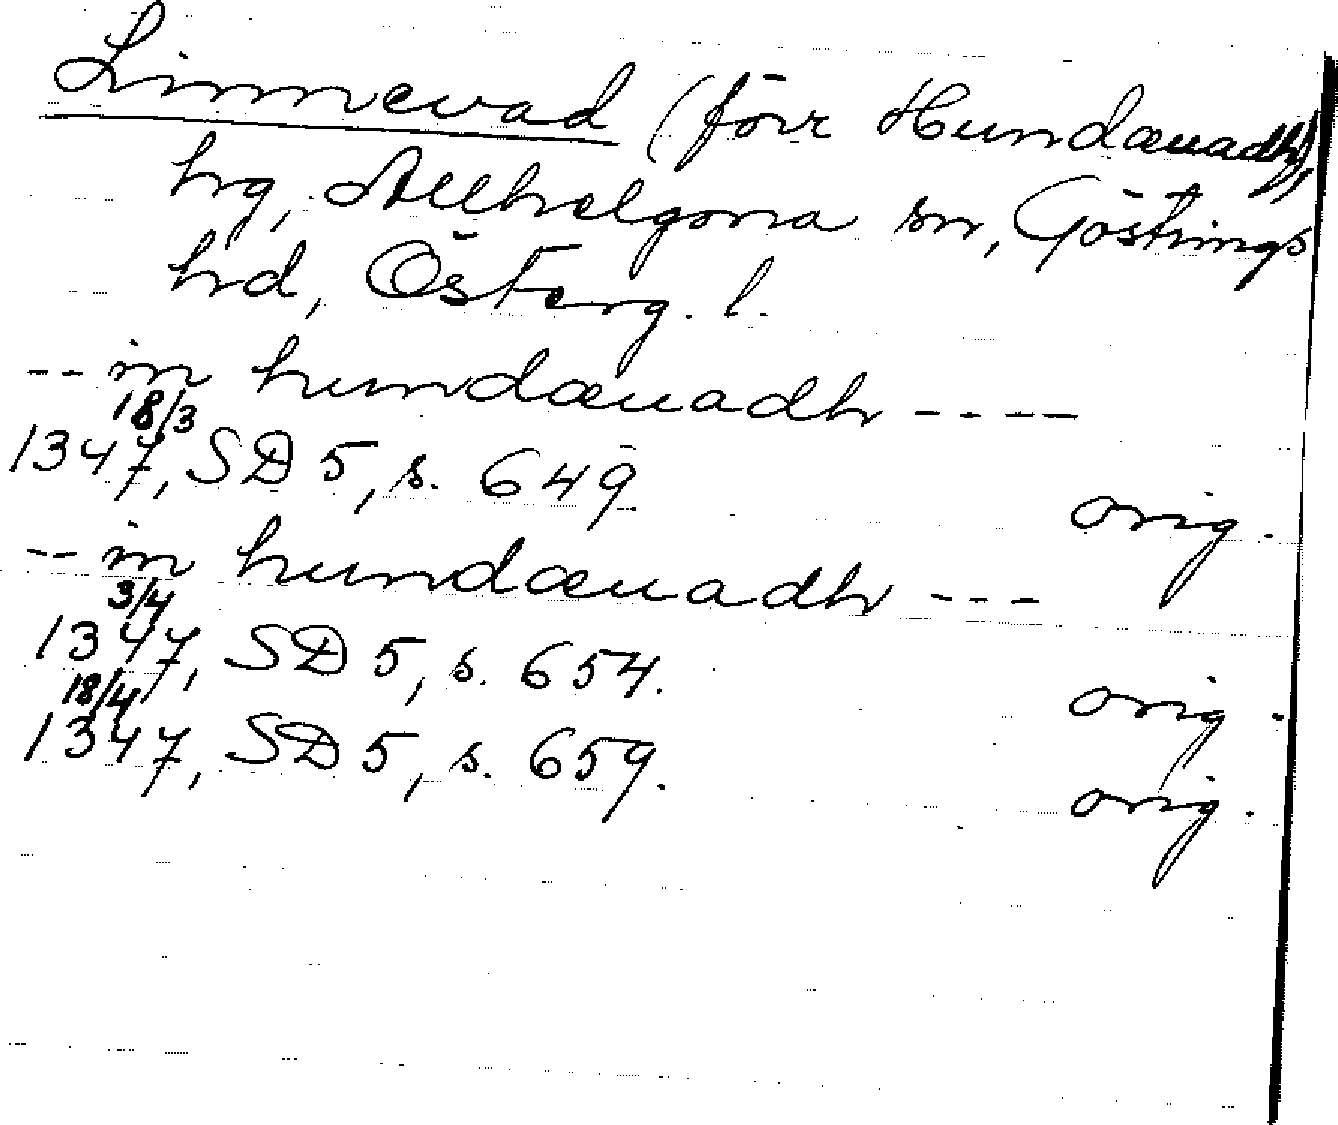 Linnevad (förr Hundæuadh),
hg, Allhelgona sn, Göstrings
hd, Österg. l.
-- in hundæuadh ----
18/3
1347, SD 5, s. 649. orig.
-- in hundæuadh ---
3/4
1347, SD 5, s. 654. orig.
18/4
1347, SD 5, s. 659. orig.